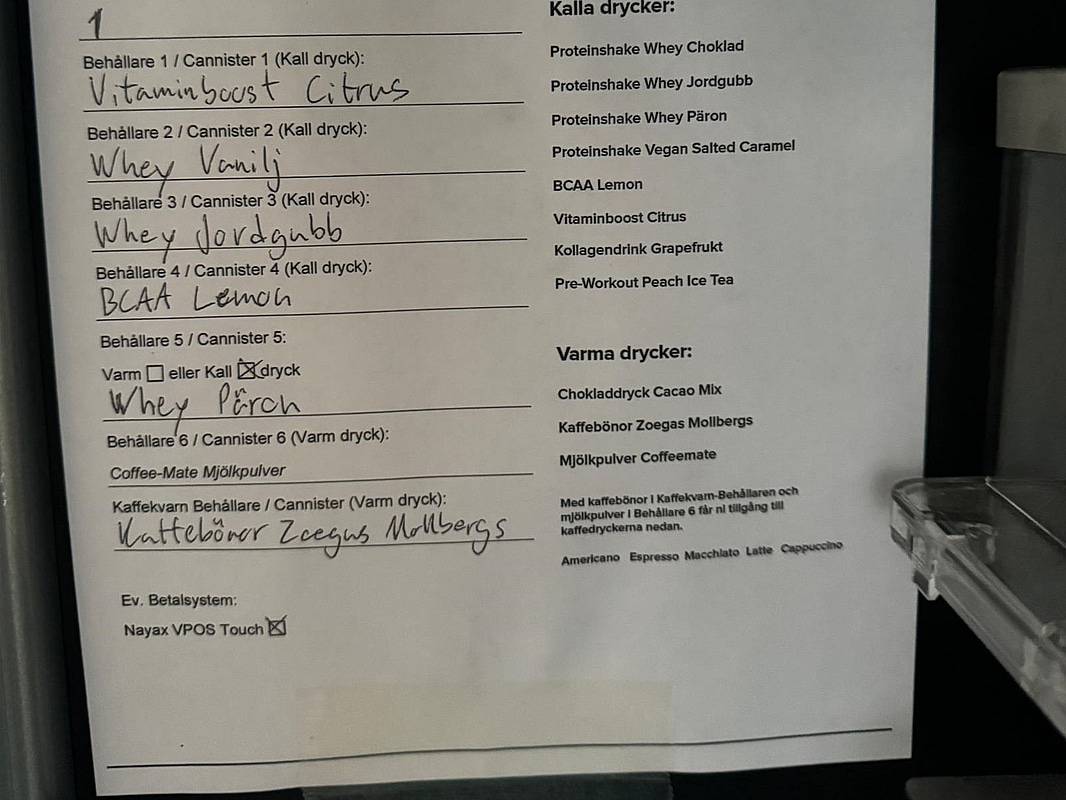 1
Behållare 1 / Cannister 1 (Kall dryck):
Vitaminboost Citrus
Behållare 2 / Cannister 2 (Kall dryck):
Whey Vanilj
Behållare 3 / Cannister 3 (Kall dryck):
Whey Jordgubb
Behållare 4 / Cannister 4 (Kall dryck):
BCAA Lemon
Behållare 5 / Cannister 5:
Varm ☐ eller Kall ☒ dryck
Whey Päron
Behållare 6 / Cannister 6 (Varm dryck):
Coffee-Mate Mjölkpulver
Kaffekvarn Behållare / Cannister (Varm dryck):
Kaffebönor Zoegas Mollbergs
Ev. Betalsystem:
Nayax VPOS Touch ☒
Kalla drycker:
Proteinshake Whey Choklad
Proteinshake Whey Jordgubb
Proteinshake Whey Päron
Proteinshake Vegan Salted Caramel
BCAA Lemon
Vitaminboost Citrus
Kollagendrink Grapefrukt
Pre-Workout Peach Ice Tea
Varma drycker:
Chokladdryck Cacao Mix
Kaffebönor Zoegas Mollbergs
Mjölkpulver Coffeemate
Med kaffebönor I Kaffekvarn-Behållaren och
mjölkpulver i Behållare 6 får ni tillgång till
kaffedryckerna nedan.
Americano Espresso Macchiato Latte Cappuccino